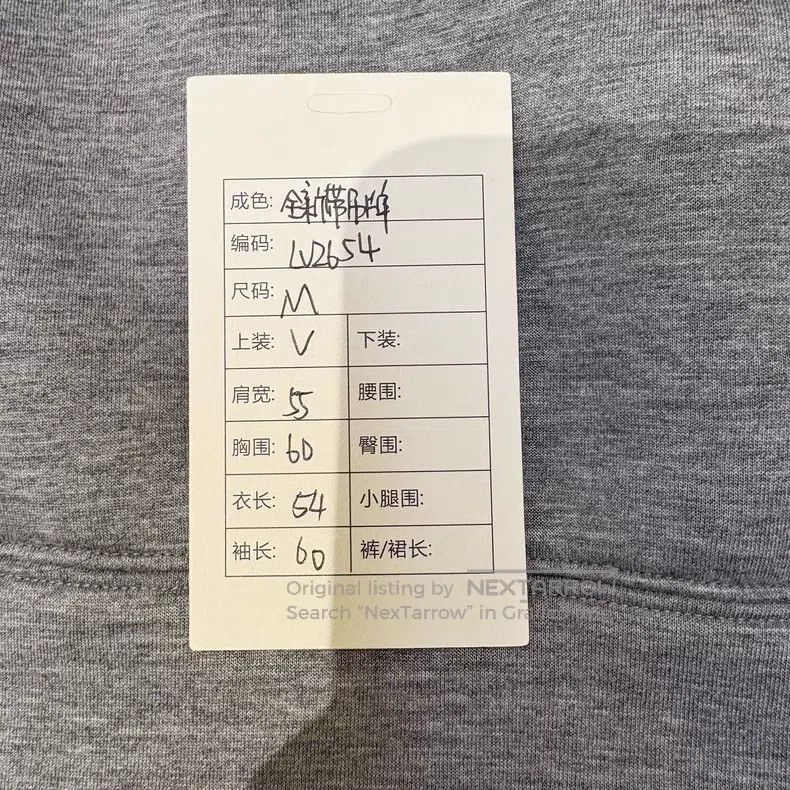 成色: 全新带吊牌
编码: LV2654
尺码: M
上装: V 下装:
肩宽: 55 腰围:
胸围: 60 臀围:
衣长: 54 小腿围:
袖长: 60 裤/裙长:
Original listing by NEXTARROW
Search “NexTarrow” in Gra